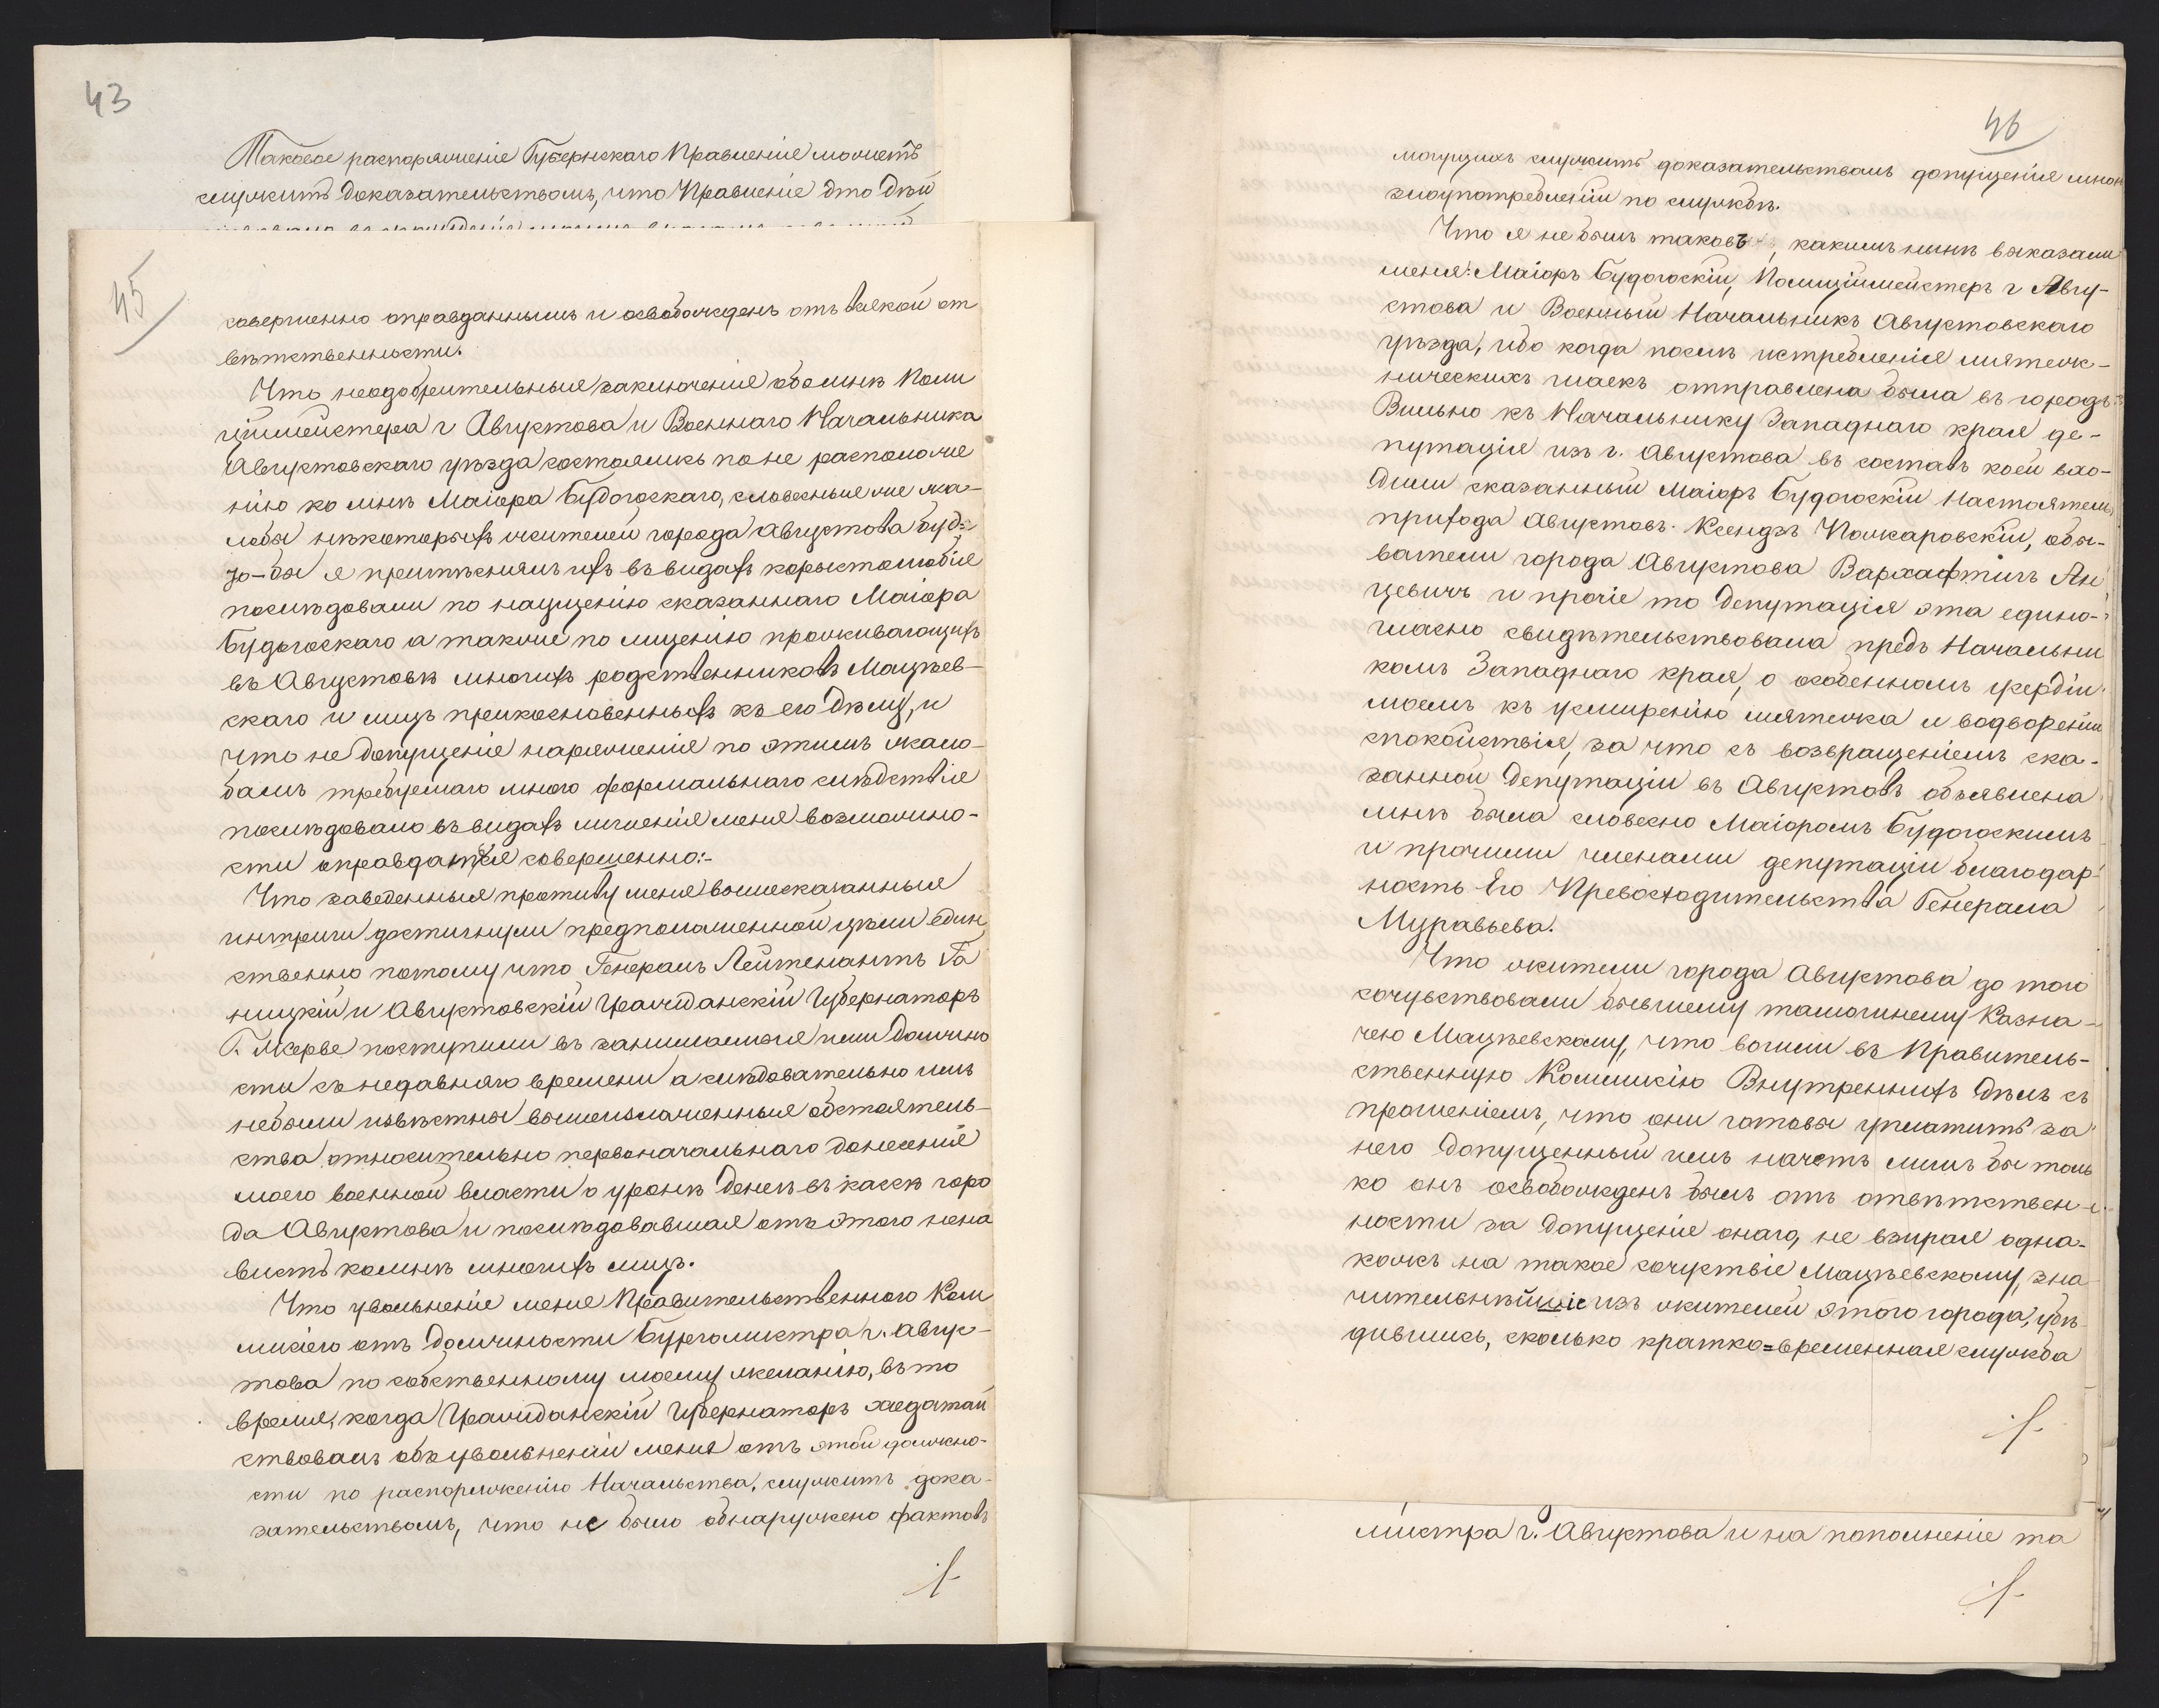 43
Таковое распоряженіе Губернскаго Правленія можетъ
служить доказательствомъ, что Правленіе это дѣй
45
совершенно оправданнымъ и освобожденъ отъ всякой от
вѣтственности.
Что неодобрительныя заключенія обо мнѣ Поли
ціймейстера г Августова и Военнаго Начальника
Августовскаго уѣзда состоялись по не расположе
нію ко мнѣ Маіора Будогоскаго, словесныя же жа-
лобы нѣкоторыхъ жителей города Августова буд=
то-бы я притѣснялъ ихъ въ видахъ корыстолюбія
послѣдовали по наущенію сказаннаго Маіора
Будогоскаго а также по мщенію проживающихъ
въ Августовѣ многихъ родственниковъ Мацѣев-
скаго и лицъ прикосновенныхъ къ его дѣлу, и
что не допущеніе наряженія по этимъ жало-
бамъ требуемаго мною формальнаго слѣдствія
послѣдовало въ видахъ лишенія меня возможно-
сти оправдаться совершенно:-
Что заведенныя противу меня вышесказанныя
интриги достигнули предположенной цѣли един
ственно потому что Генералъ Лейтенантъ Га
ницкій и Августовскій Гражданскій Губернаторъ
Г. Жерве поступили въ занимаемыя ими должно
сти съ недавняго времени а слѣдовательно имъ
небыли извѣстны вышеизложенныя обстоятель-
ства относительно первоначальнаго донесенія
моего военной власти о уронѣ денегъ въ кассѣ горо
да Августова и послѣдовавшая отъ этого нена
висть ко мнѣ многихъ лицъ.
Что увольненіе меня Правительственною Ком
мисіею отъ должности Бургомистра г. Авгус-
това по собственному моему желанію, въ то
время, когда Гражданскій Губернаторъ ходатай
ствовалъ объ увольненіи меня отъ этой должно-
сти по распоряженію Начальства, служитъ дока-
зательствомъ, что не было обнаружено фактовъ
46
могущихъ служить доказательствомъ допущенія мною
злоупотребленій по службѣ.
Что я не былъ таковъ, какимъ нынѣ высказали
меня: Маіоръ Будогоскій, Полиціймейстеръ г Авгу-
стова и Военный Начальникъ Августовскаго
уѣзда, ибо когда послѣ истребленія мятеж-
ническихъ шаекъ отправлена была въ городъ
Вильно къ Начальнику Западнаго края де-
путація изъ г. Августова въ составъ коей вхо-
дили сказанный Маіоръ Будогоскій Настоятель
прихода Августовъ. Ксендзъ Полкаровскій, обы-
ватели города Августова Вархафтигъ Ан
цевичъ и прочіе то депутація эта едино-
гласно свидѣтельствовала предъ Начальни
комъ Западнаго края, о особенномъ усердіи
моемъ къ усмиренію мятежа и водворенію
спокойствія, за что съ возвращеніемъ ска-
занной депутаціи въ Августовъ объявлена
мнѣ была словесно Маіоромъ Будогоскимъ
и прочими членами депутаціи благодар-
ность Его Превосходительства Генерала
Муравьева.
Что жители города Августова до того
сочувствовали бывшему тамошнему Казна-
чею Мацѣевскому, что вошли въ Правитель-
ственную Коммисію Внутреннихъ Дѣлъ съ
прошеніемъ, что они готовы уплатить за
него допущенный имъ начетъ лишь бы толь
ко онъ освобожденъ былъ отъ отвѣтствен-
ности за допущеніе онаго, не взирая одна-
кожъ на такое сочуствіе Мацѣевскому, зна
чительнѣйшіе изъ жителей этого города, убѣ
дившись, сколько кратко=временная служба
мистра г. Августова и на пополненіе та